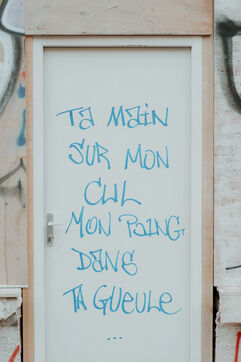 Ta Main
Sur Mon
Cul
Mon Poing
Dans
Ta Gueule
...